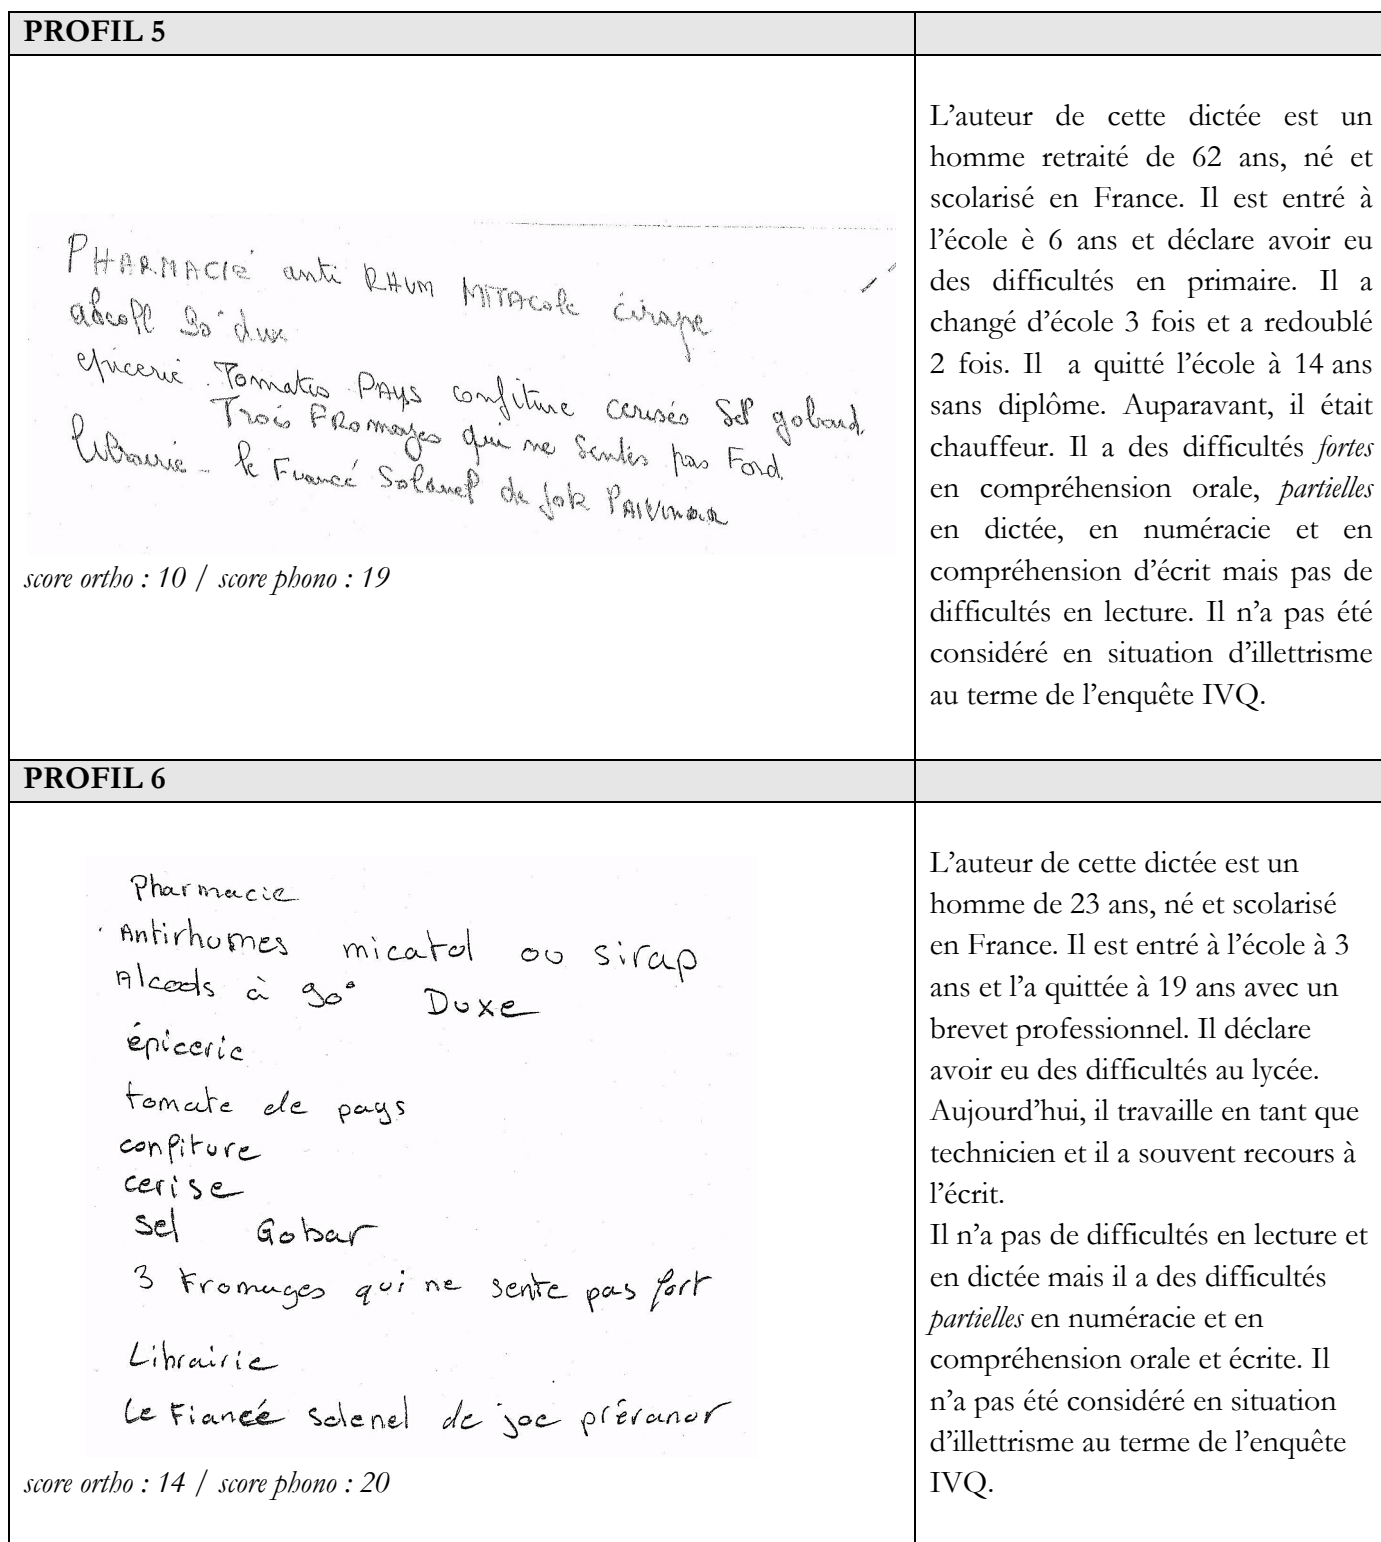 PROFIL 5
PHARMACIE anti RHUM MITACole cirape
alcoll 90° dux
epicerie Tomates PAYS confiture cerisés Sel gobard.
Trois FRomages qui ne Sentes pas Ford.
librairie - le Fiancé Solanel de jok
score ortho : 10 / score phono : 19
L’auteur de cette dictée est un
homme retraité de 62 ans, né et
scolarisé en France. Il est entré à
l’école è 6 ans et déclare avoir eu
des difficultés en primaire. Il a
changé d’école 3 fois et a redoublé
2 fois. Il a quitté l’école à 14 ans
sans diplôme. Auparavant, il était
chauffeur. Il a des difficultés fortes
en compréhension orale, partielles
en dictée, en numéracie et en
compréhension d’écrit mais pas de
difficultés en lecture. Il n’a pas été
considéré en situation d’illettrisme
au terme de l’enquête IVQ.
PROFIL 6
Pharmacie
Antirhumes micatol ou sirap
Alcools à 90° Duxe
épicerie
tomate de pays
confiture
cerise
sel Gobar
3 Fromages qui ne sente pas fort
Librairie
Le Fiancé solenel de joe préranor
score ortho : 14 / score phono : 20
L’auteur de cette dictée est un
homme de 23 ans, né et scolarisé
en France. Il est entré à l’école à 3
ans et l’a quittée à 19 ans avec un
brevet professionnel. Il déclare
avoir eu des difficultés au lycée.
Aujourd’hui, il travaille en tant que
technicien et il a souvent recours à
l’écrit.
Il n’a pas de difficultés en lecture et
en dictée mais il a des difficultés
partielles en numéracie et en
compréhension orale et écrite. Il
n’a pas été considéré en situation
d’illettrisme au terme de l’enquête
IVQ.